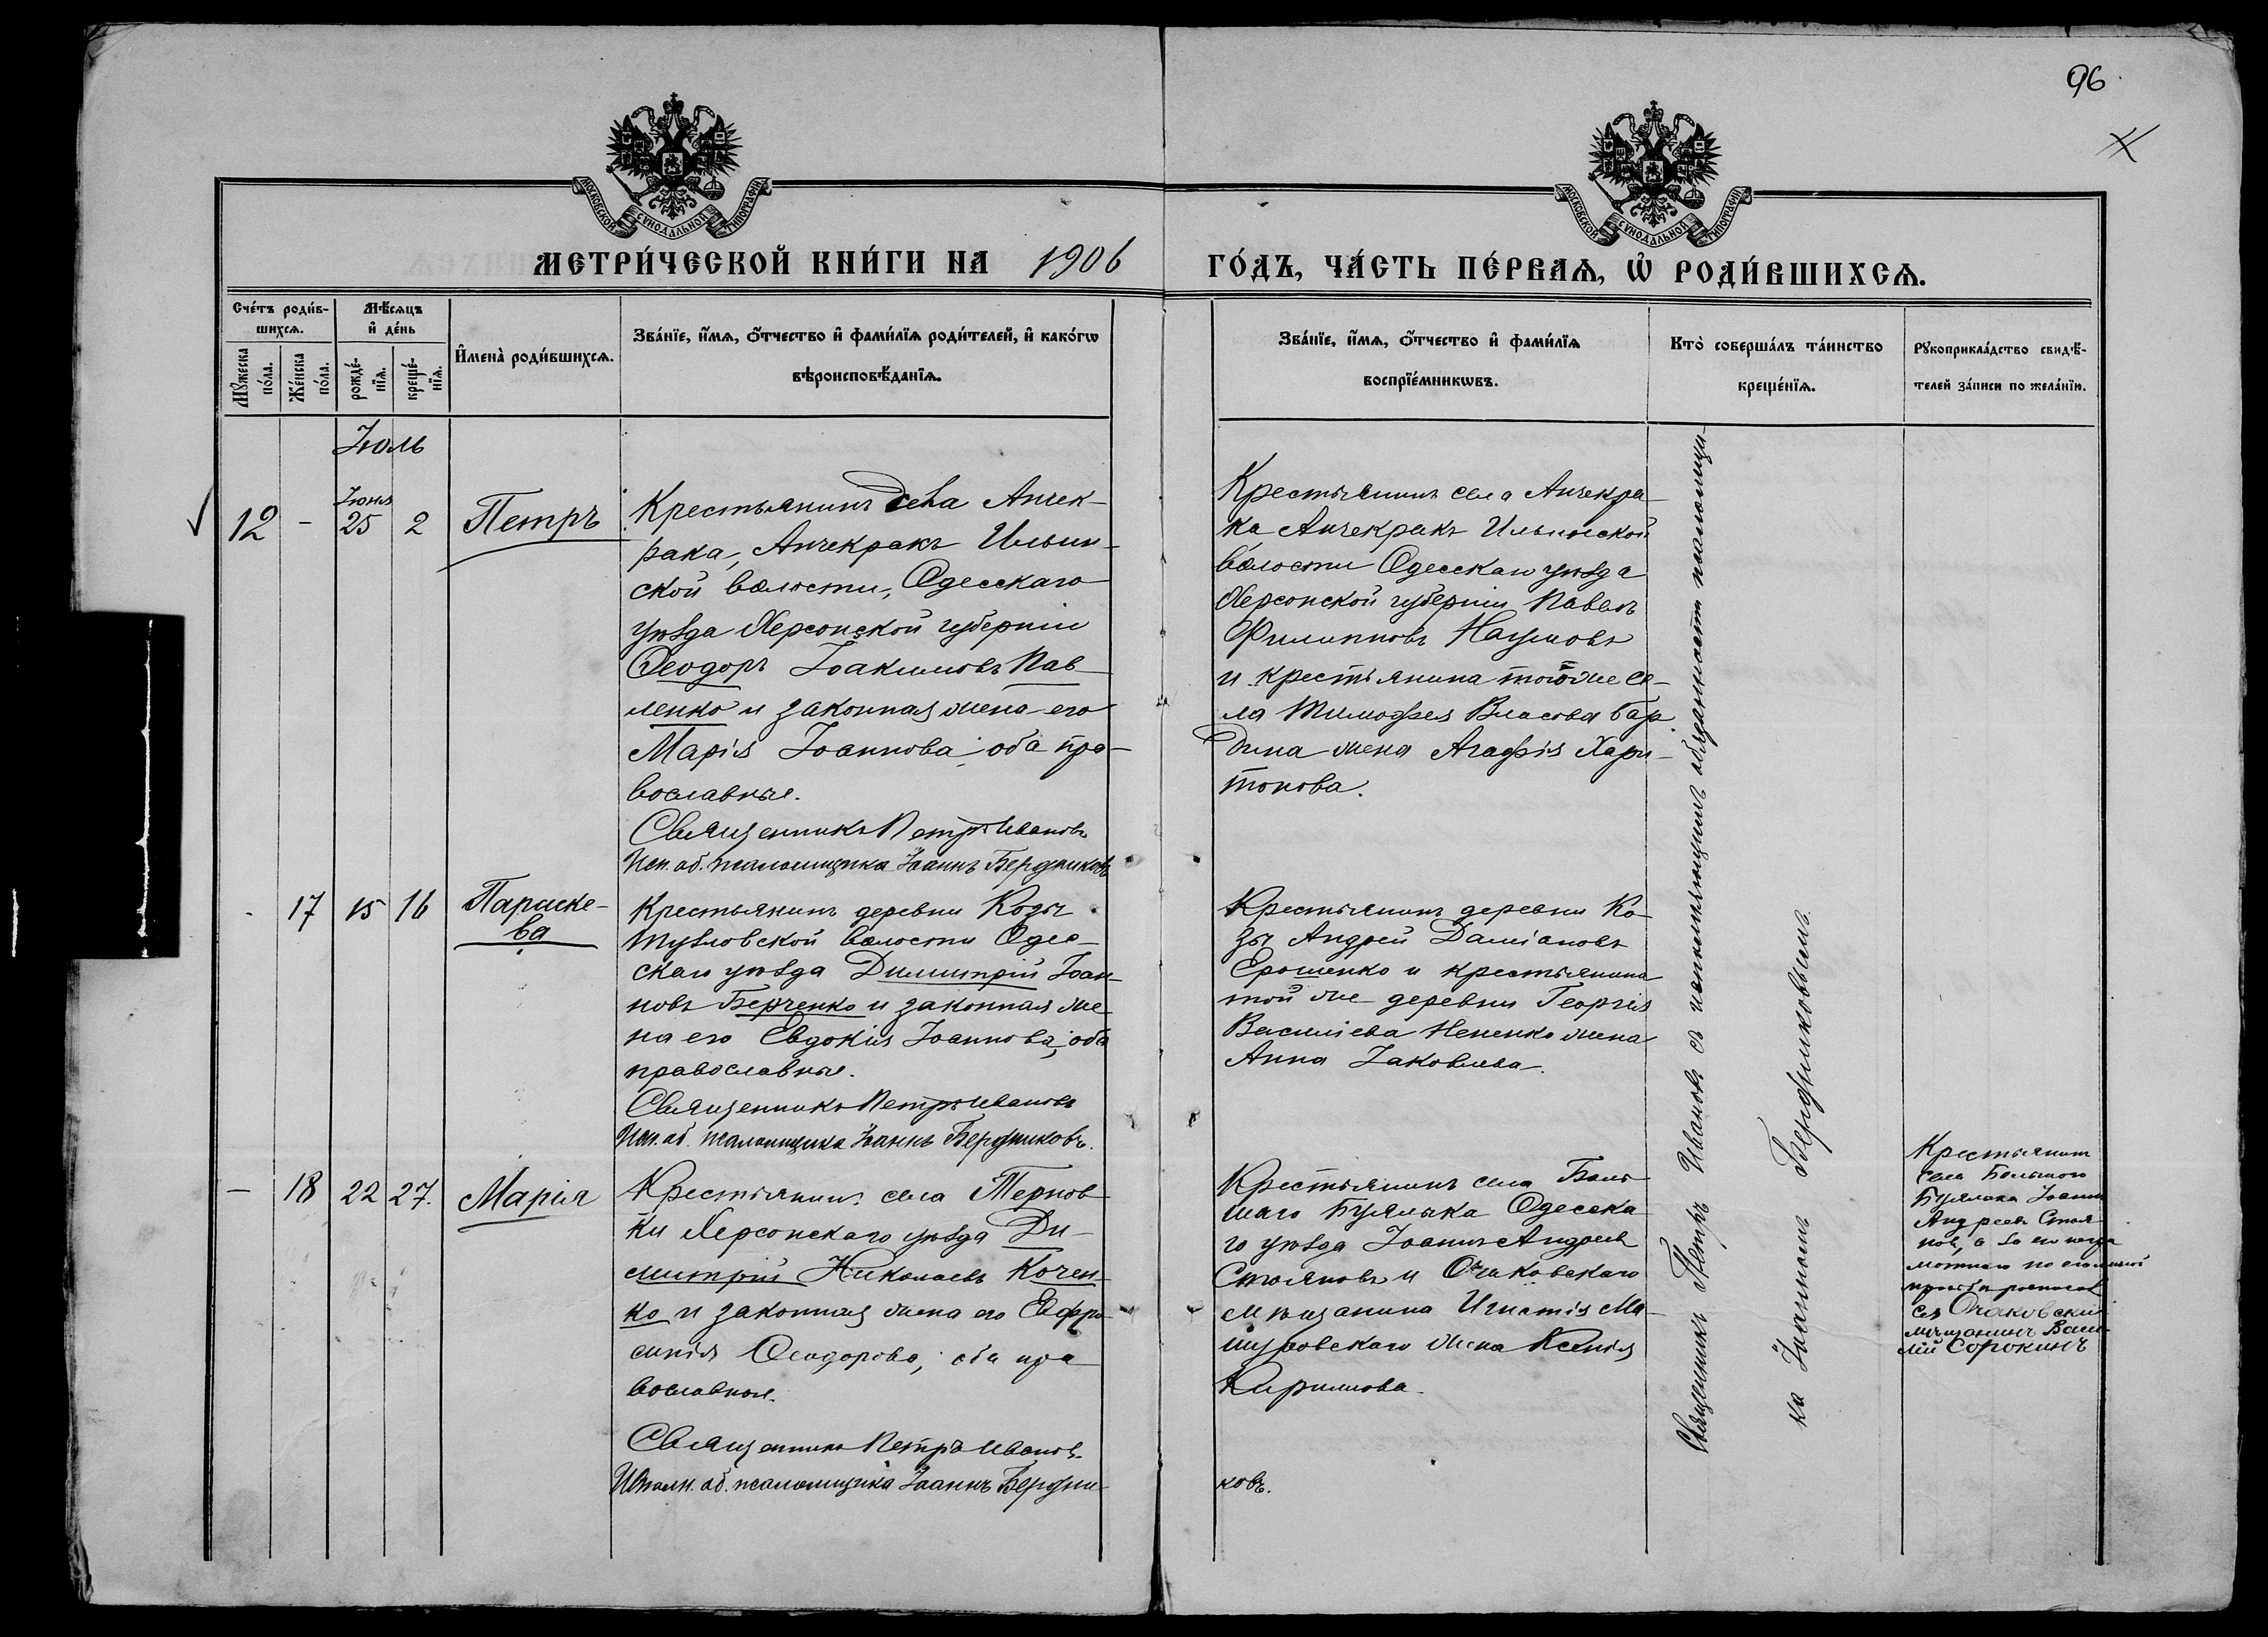 96
МОСКОВСКОЙ СУНОДАЛЬНОЙ ТИПОГРАФІИ
МОСКОВСКОЙ СУНОДАЛЬНОЙ ТИПОГРАФІИ
МЕТРИ́ЧЕСКОЙ КНИ́ГИ НА 1906 ГО́ДЪ, ЧА́СТЬ ПЕ́РВАѦ, Ѡ҆ РОДИ́ВШИХСѦ.
Сче́тъ роди́в-
шихсѧ.
Мꙋжеска
по́ла.
Же́нска
по́ла.
Мѣ́сяцъ
и҆ де́нь
рожде́-
нїѧ.
креще́-
нїѧ.
И҆мена̀ роди́вшихсѧ.
Зва́нїе, и҆́мѧ, ѻ҆́тчество и҆ фами́лїѧ роди́телей, и҆ како́гѡ
вѣроисповѣ́данїѧ.
Зва́нїе, и҆́мѧ, ѻ҆́тчество и҆ фами́лїѧ
воспрїе́мникѡвъ.
Кто̀ соверша́лъ та́инство
креще́нїѧ.
Рꙋкоприкла́дство свидѣ́-
телей за́писи по жела́нїю.
Іюль
12 - Іюня 25 2 Петръ
Крестьянинъ села Анчек-
рака, Анчекракъ Ильин-
ской волости, Одесскаго
уѣзда Херсонской губерніи
Ѳеодоръ Іоакимовъ Пав
ленко и законная жена его
Марія Іоаннова, оба пра-
вославные.
Священникъ Петръ Ивановъ
Исп. об. псаломщика Іоаннъ Бердниковъ
Крестьянинъ села Анчекра-
ка Анчекракъ Ильинской
волости Одесскаго уѣзда
Херсонской губерніи Павелъ
Филипповъ Наумовъ
и крестьянина тогоже се-
ла Тимофея Власова Бар
дина жена Агафія Хари-
тонова.
- 17 15 16 Параске-
ва
Крестьянинъ деревни Козы
Тузловской волости Одес-
скаго уѣзда Димитрій Іоан-
новъ Берченко и законная же
на его Евдокія Іоаннова, оба
православные.
Священникъ Петръ Ивановъ
Исп. об. псаломщика Іоаннъ Бердниковъ.
Крестьянинъ деревни Ко-
зы Андрей Даміановъ
Ерошенко и крестьянина
той же деревни Георгія
Василіева Нененко жена
Анна Іаковлева.
- 18 22 27. Марія
Крестьянинъ села Тернов-
ки Херсонскаго уѣзда Ди-
митрій Николаевъ Кочен-
ко и законная жена его Евфро-
синія Ѳеодорова, оба пра
вославные.
Священникъ Петръ Ивановъ.
Исполн. об. псаломщика Іоаннъ Бердни-
ковъ.
Крестьянинъ села Боль-
шаго Буялыка Одесска
го уѣзда Іоаннъ Андреевъ
Стояновъ и Очаковскаго
мѣщанина Игнатія Ма-
шуровскаго жена Ксенія
Кириллова.
Священникъ Петръ Ивановъ съ исполняющимъ обязанности псаломщи-
ка Іоанномъ Бердниковымъ.
Крестьянинъ
села Большого
Буялыка Іоаннъ
Андреевъ Стоя
новъ, а за его негра
мотнаго по его личной
просьбѣ росписал
ся Очаковскій
мѣщанинъ Васи-
лій Сорокинъ